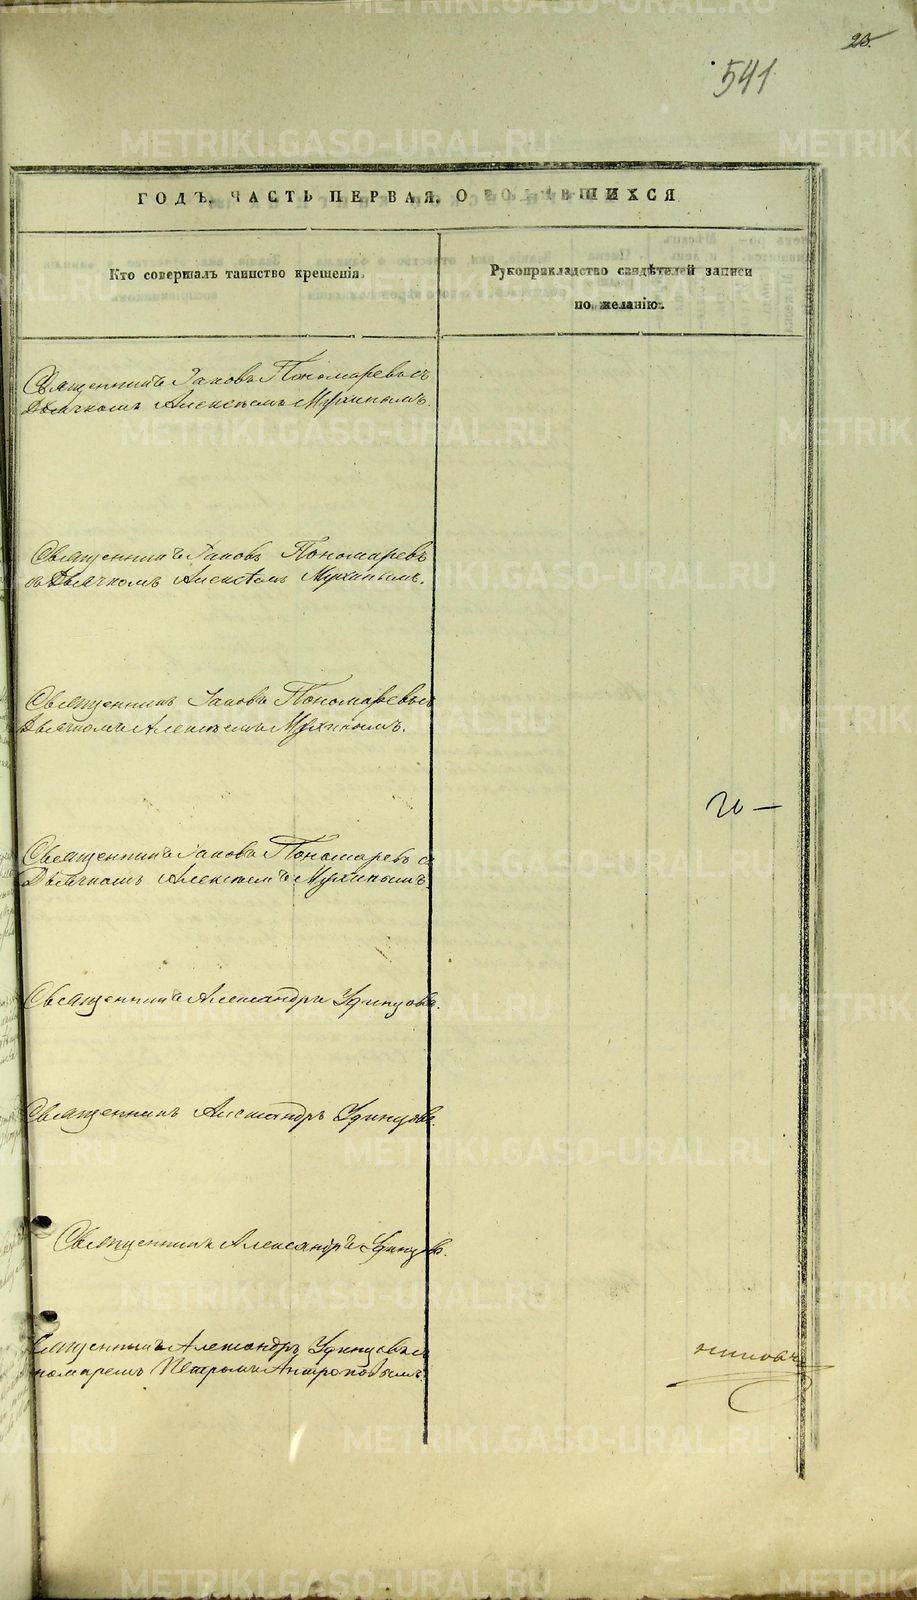 23.
541
ГОДЪ. ЧАСТЬ ПЕРВАЯ, О РОДИВШИХСЯ
Кто совершалъ таинство крещенія.
Рукоприкладство свидѣтелей записи
по желанію.
Священникъ Іаковъ Пономаревъ съ
Дьячкомъ Алексѣемъ Мухинымъ.
Священникъ Іаковъ Пономаревъ
съ Дьячкомъ Алексѣемъ Мухинымъ.
Священникъ Іаковъ Пономаревъ съ
Дьячкомъ Алексѣемъ Мухинымъ.
Священникъ Іаковъ Пономаревъ съ
Дьячкомъ Алексѣемъ Мухинымъ.
Священникъ Александръ Удинцовъ.
Священникъ Александръ Удинцовъ.
Священникъ Александръ Удинцовъ.
Священникъ Александръ Удинцовъ съ
номаремъ Петромъ Антроповымъ.
METRIKI.GASO-URAL.RU